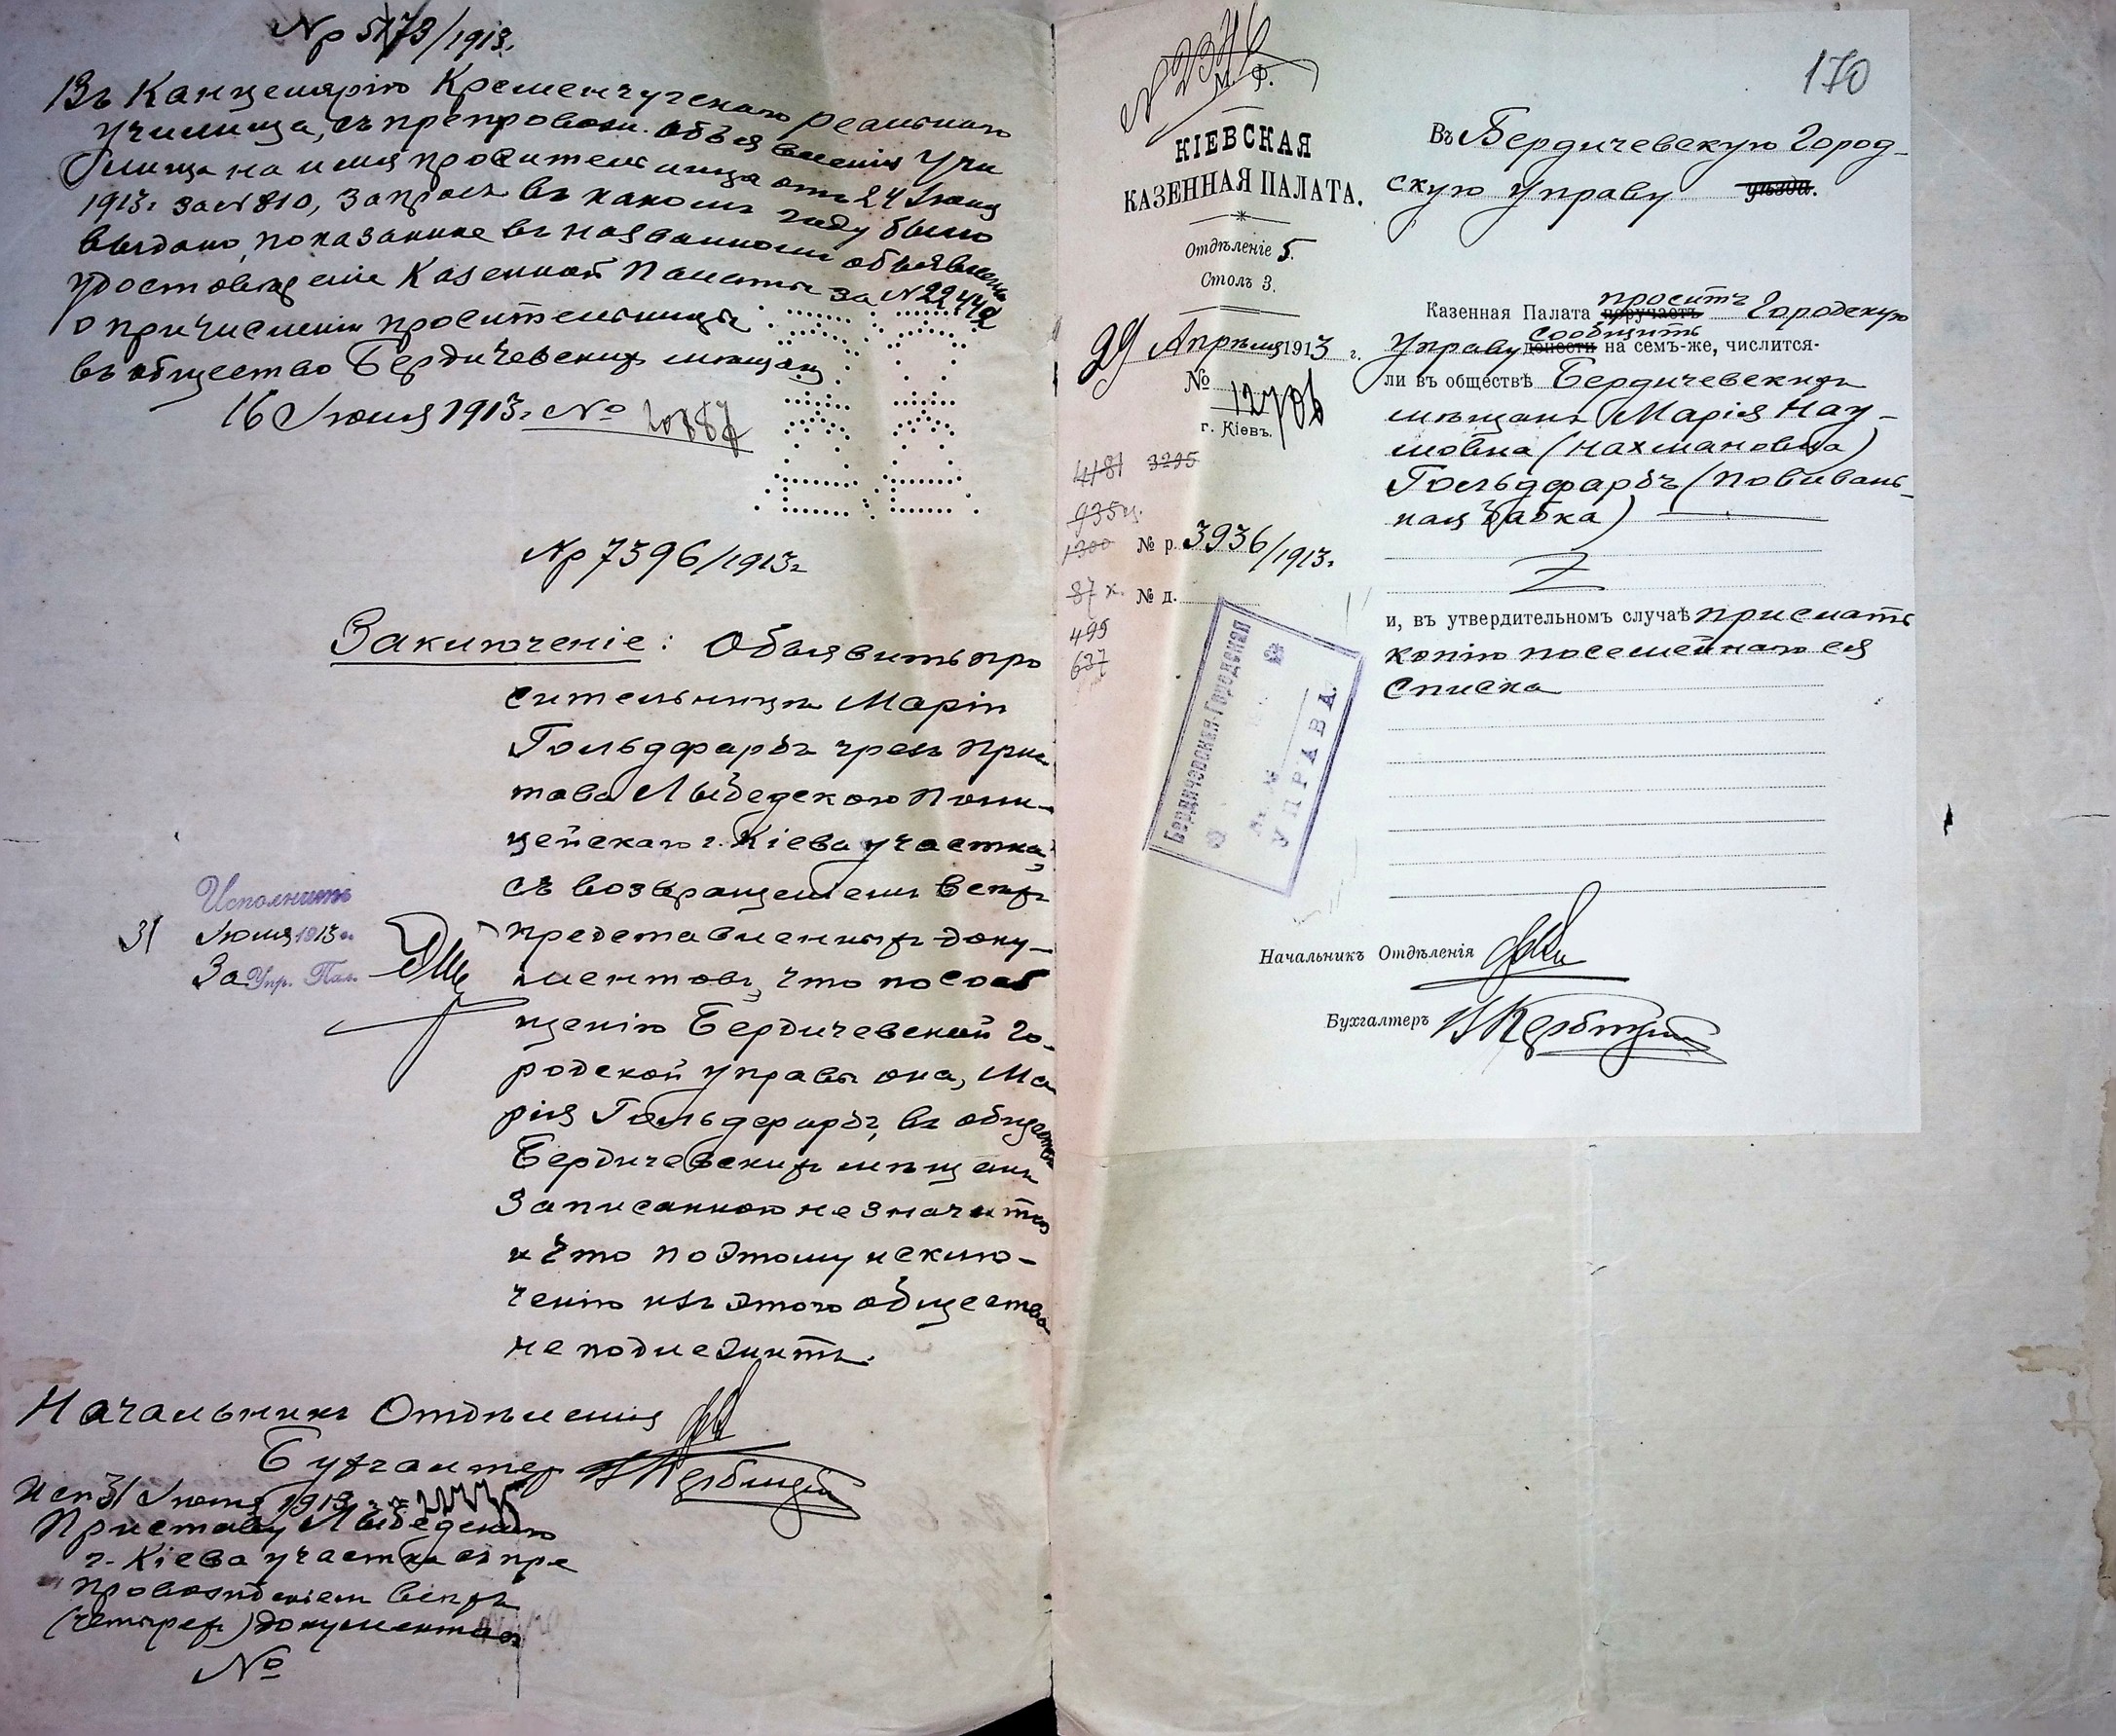 №р 5173/1913.
Въ Канцелярію Кременчугскаго реальнаго
училища, съ препровожд. объявленія Учи
лища на имя просительницы отъ 24 Іюня
1913 г. за № 810, запросъ въ какомъ году было
выдано, показанное въ названномъ объявленіи
удостовѣреніе Казенной Палаты за № 22442
о причисленіи просительницы
въ общество Бердичевскихъ мѣщанъ
16 Іюля 1913 г. № 20887
№р 7396/1913 г.
Заключеніе: Объявить про
сительницѣ Маріи
Гольдфарбъ чрезъ При
става Лыбедского Поли-
цейскаго г. Кіева участка,
съ возвращеніемъ всѣхъ
представленныхъ доку-
ментовъ, что по сооб
щенію Бердичевской Го-
родской управы она, Ма
рія Гольдфарбъ, въ обществѣ
Бердичевскихъ мѣщанъ
записанною не значится
и что поэтому исклю-
ченію изъ этого общества
не подлежитъ.
Исполнить
31 Іюля 1913 г.
За Упр. Пал.
Начальникъ Отдѣленія
Бухгалтеръ
Исп. 31 Іюля 1913 г.
Приставу Лыбедского
г. Кіева участка съ пре
провожденіемъ всѣхъ
(четырехъ) документовъ
№
170
М. Ф.
КІЕВСКАЯ
КАЗЕННАЯ ПАЛАТА.
Отдѣленіе 5.
Столъ 3.
29 Апрѣля 1913 г.
№ 12706
г. Кіевъ.
4181 3295
935 ц.
1300
№ р. 3936/1913 г.
87 х.
№ д.
495
637
Бердичевская Городская
УПРАВА.
Въ Бердичевскую Город-
скую Управу уѣзда.
Казенная Палата поручаетъ проситъ Городскую
Управу донести сообщить на семъ-же, числится-
ли въ обществѣ Бердичевскихъ
мѣщанъ Марія Нау-
мовна (Нахмановна)
Гольдфарбъ (повиваль-
ная бабка)
и, въ утвердительномъ случаѣ прислать
копію посемейнаго ея
списка
Начальникъ Отдѣленія
Бухгалтеръ